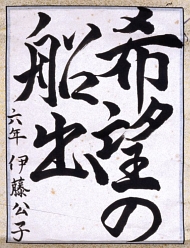 希望の
船出
六年 伊藤公子